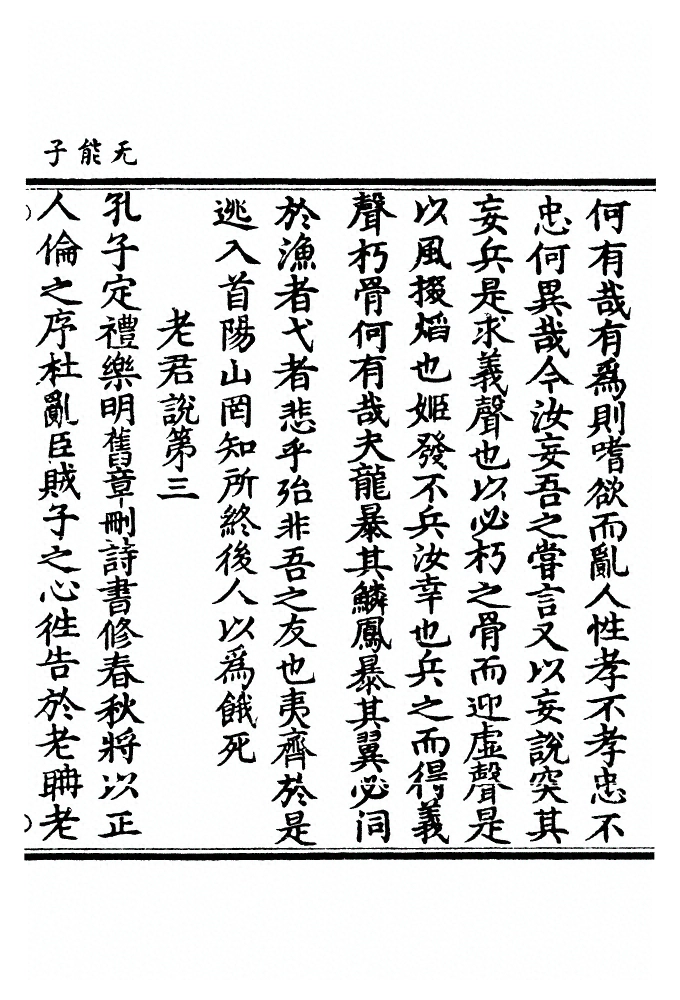 无能子
何有哉有爲則嗜欲而亂人性孝不孝忠不
忠何異哉今汝妄吾之嘗言又以妄說突其
妄兵是求義聲也以必朽之骨而迎虛聲是
以風掇熖也姬發不兵汝幸也兵之而得義
聲朽骨何有哉夫龍暴其鱗鳳暴其翼必伺
於漁者弋者悲乎殆非吾之友也夷齊於是
逃入首陽山罔知所終後人以爲餓死
老君說第三
孔子定禮樂明舊章刪詩書修春秋將以正
人倫之序杜亂臣賊子之心徃告於老聃老